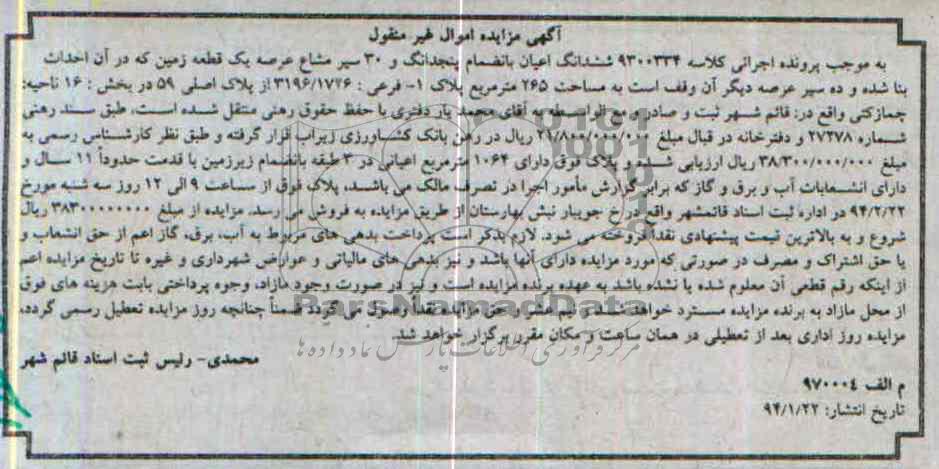 آگهی مزایده اموال غیر منقول
به موجب پرونده اجرائی کلاسه ۹۳۰۰۳۳۴ ششدانگ اعیان بانضمام پنجدانگ و ۳۰ سیر مشاع عرصه یک قطعه زمین که در آن احداث
بنا شده و ده سیر عرصه دیگر آن وقف است به مساحت ۲۶۵ مترمربع پلاک ۱- فرعی : ۳۱۹۶/۱۷۲۶ از پلاک اصلی ۵۹ در بخش : ۱۶ ناحیه:
جمازکتی واقع در: قائم شهر ثبت و صادر و مع الواسطه به آقای محمد یار دفتری با حفظ حقوق رهنی منتقل شده است، طبق سند رهنی
شماره ۲۷۲۷۸ و دفترخانه در قبال مبلغ ۲۷/۸۰۰/۰۰۰/۰۰۰ ریال در رهن بانک کشاورزی زیراب قرار گرفته و طبق نظر کارشناس رسمی به
مبلغ ۳۸/۳۰۰/۰۰۰/۰۰۰ ریال ارزیابی شده و پلاک فوق دارای ۱۰۶۴ مترمربع اعیانی در ۳ طبقه بانضمام زیرزمین با قدمت حدوداً ۱۱ سال و
دارای انشعابات آب و برق و گاز که برابر گزارش مأمور اجرا در تصرف مالک می باشد، پلاک فوق از ساعت ۹ الی ۱۲ روز سه شنبه مورخ
۹۴/۲/۲۲ در اداره ثبت اسناد قائمشهر واقع در خ جویبار نبش بهارستان از طریق مزایده به فروش می رسد. مزایده از مبلغ ۳۸۳۰۰۰۰۰۰۰۰ ریال
شروع و به بالاترین قیمت پیشنهادی نقدا فروخته می شود. لازم بذکر است پرداخت بدهی های مربوط به آب، برق، گاز اعم از حق انشعاب و
یا حق اشتراک و مصرف در صورتی که مورد مزایده دارای آنها باشد و نیز بدهی های مالیاتی و عوارض شهرداری و غیره تا تاریخ مزایده اعم
از اینکه رقم قطعی آن معلوم شده یا نشده باشد به عهده برنده مزایده است و نیز در صورت وجود مازاد، وجوه پرداختی بابت هزینه های فوق
از محل مازاد به برنده مزایده مسترد خواهد شد. و نیم عشر و حق مزایده نقدا وصول می گردد ضمناً چنانچه روز مزایده تعطیل رسمی گردد،
مزایده روز اداری بعد از تعطیلی در همان ساعت و مکان مقرر برگزار خواهد شد.
ParsNamadData
مرکز فرآوری اطلاعات پارس نماد داده ها
محمدی- رئیس ثبت اسناد قائم شهر
م الف ۹۷۰۰۰۴
تاریخ انتشار: ۹۴/۱/۲۲